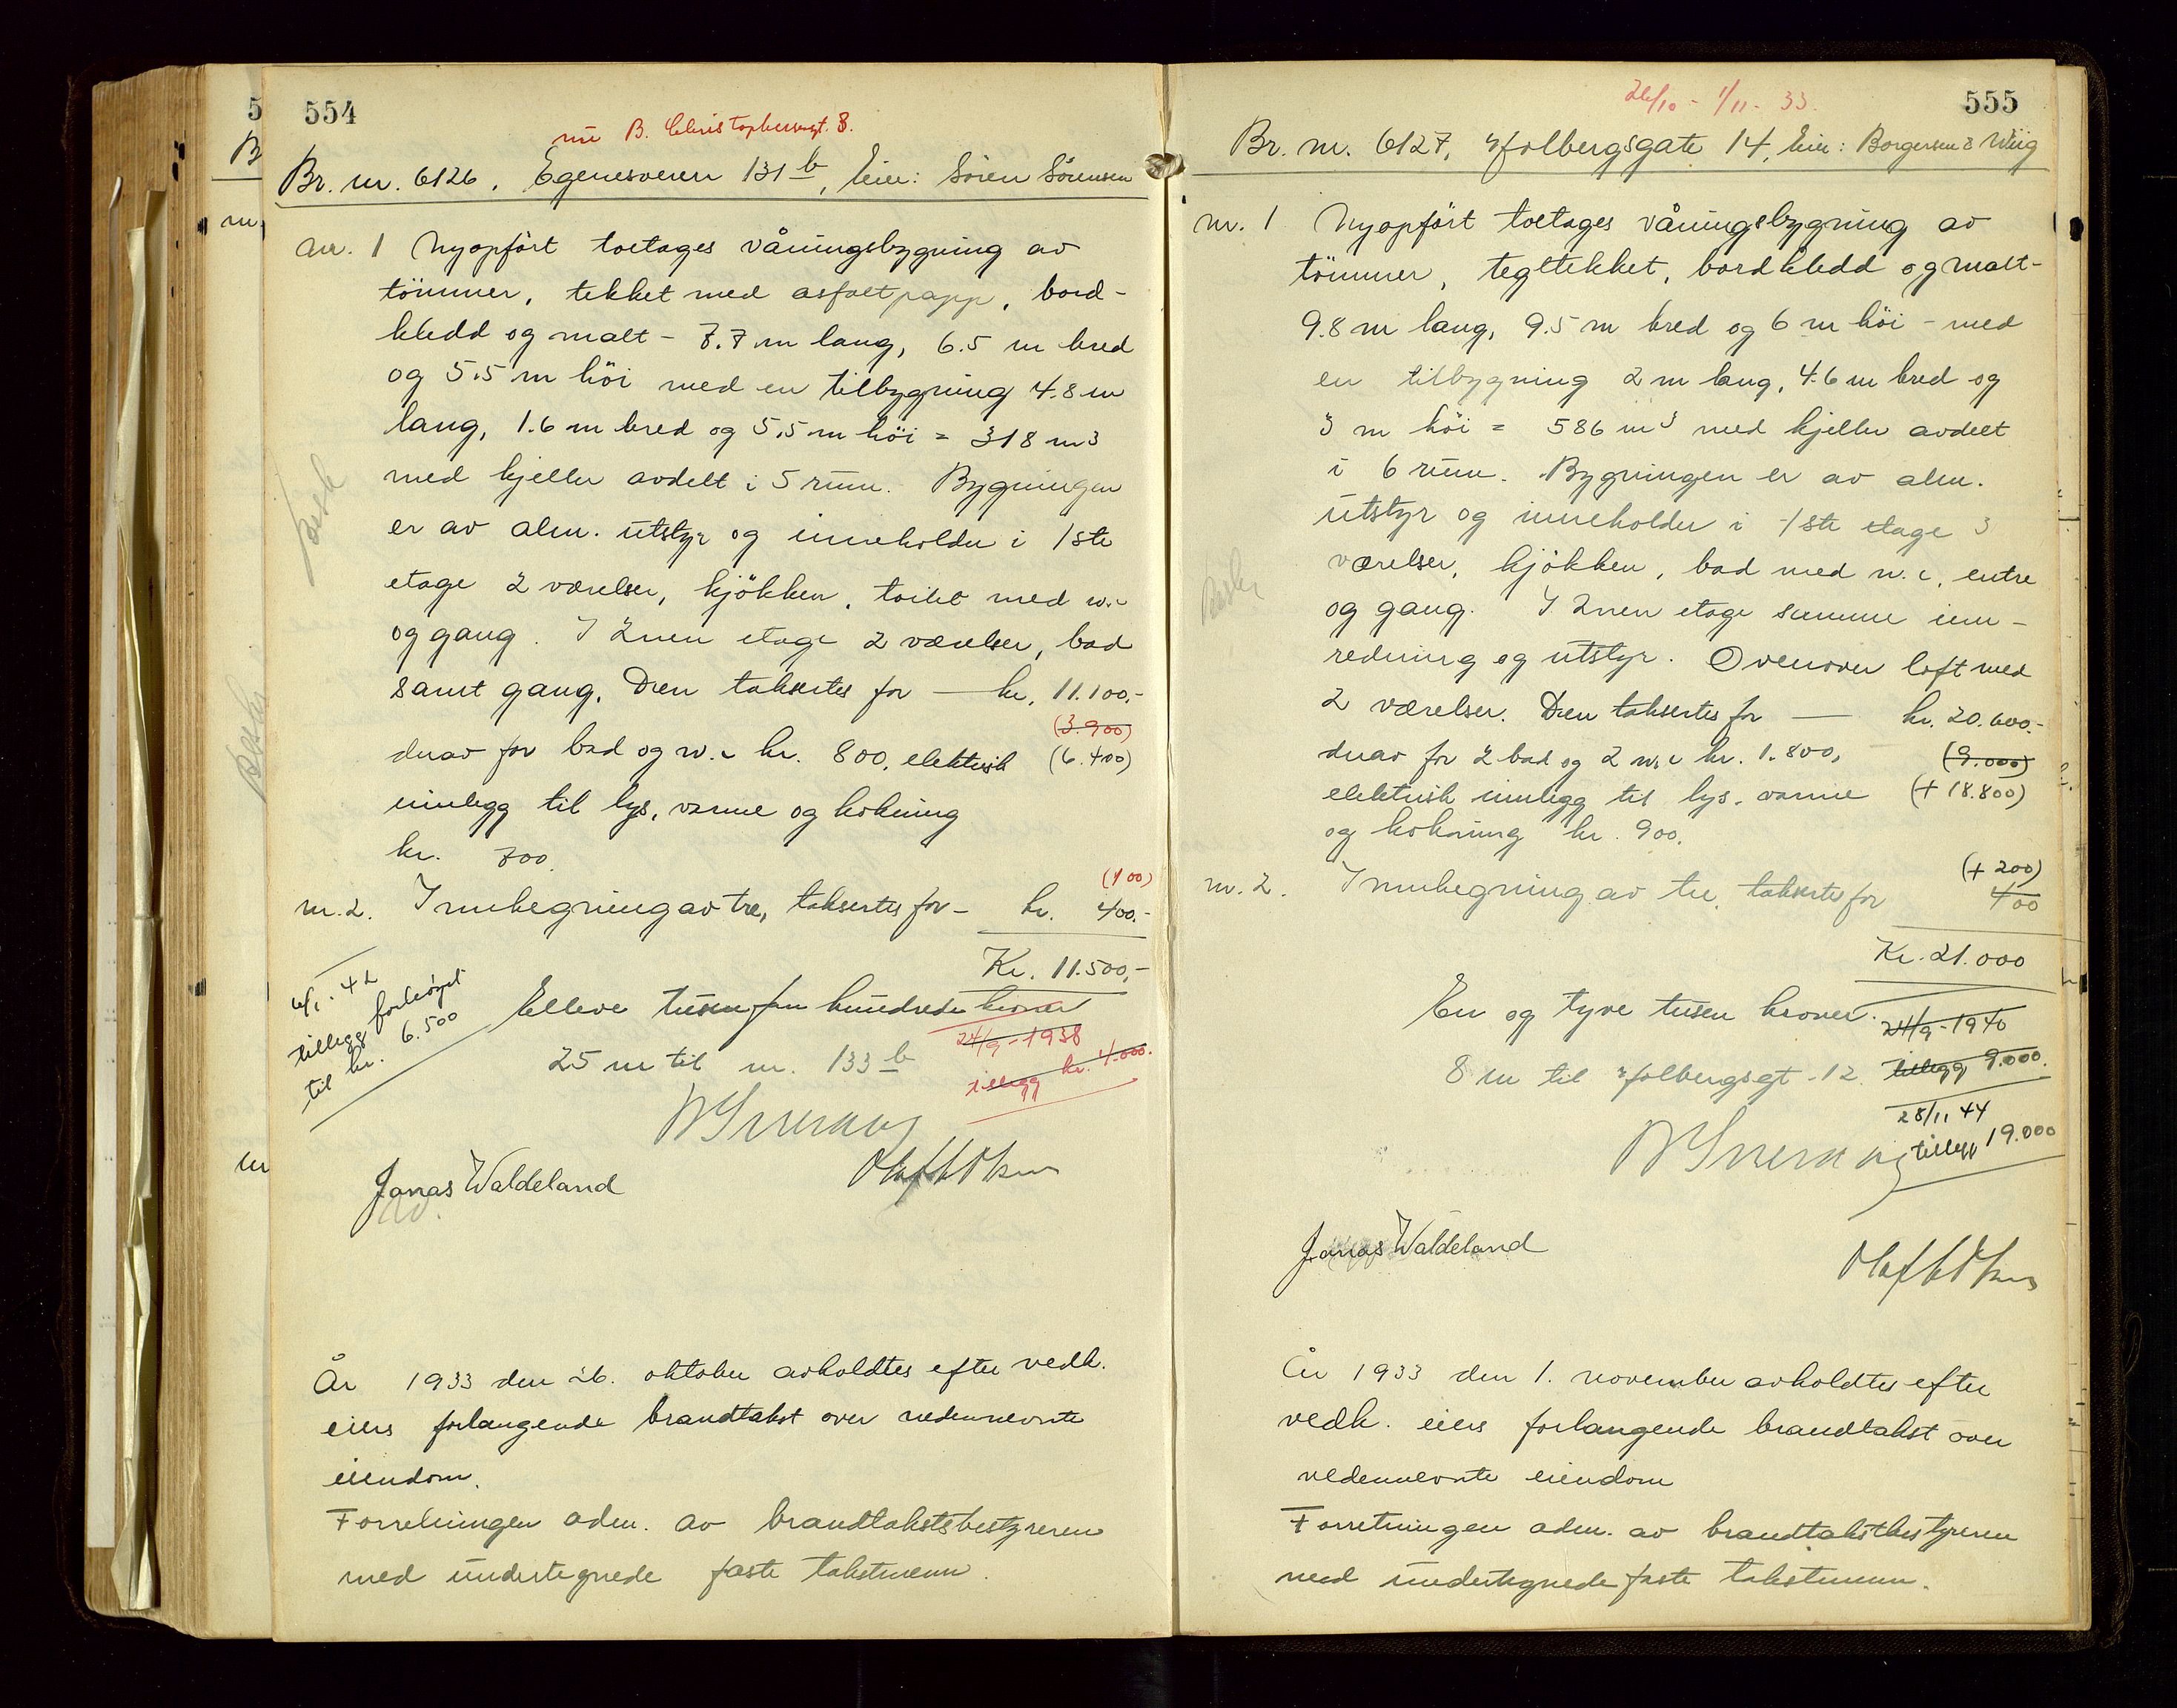 554
nu B. Christophersensgt. 8.
Br. nr. 6126, Egenesveien 131 b, Eier: Sören Sörensen
nr. 1 Nyopfört toetages våningsbygning av
tömmer, tekket med asfaltpapp, bord-
kledd og malt - 7.7 m lang, 6.5 m bred
og 5.5 m höi med en tilbygning 4.8 m
lang, 1.6 m bred og 5.5 m höi = 318 m3
med kjeller avdelt i 5 rum. Bygningen
er av alm. utstyr og inneholder i 1ste
etage 2 værelser, kjökken, toilet med w.c
og gang. I 2nen etage 2 værelser, bad
samt gang. Den taksertes for — kr. 11.100,-
(3.900)
derav for bad og w.c kr. 800, elektrisk (6.400)
innlegg til lys, varme og kokning
kr. 700.
(100)
nr. 2. Innhegning av tre, taksertes for - kr. 400.-
Kr. 11.500,-
Elleve tusen fem hundrede kroner
6/1 - 42
tillegg forhöyet
til kr. 6.500
24/9 - 1938
tillegg kr. 4.000.
25 m til nr. 133 b
Jonas Waldeland
År 1933 den 26. oktober avholdtes efter vedk.
eiers forlangende brandtakst over nedennevnte
eiendom.
Forretningen adm. av brandtakstsbestyreren
med undertegnede faste takstmenn.
26/10 - 1/11 - 33.
555
Br. nr. 6127, Holbergsgate 14, Eier: Borgersen & Wiig
nr. 1 Nyopfört toetages våningsbygning av
tömmer, tegltekket, bordkledd og malt -
9.8 m lang, 9.5 m bred og 6 m höi - med
en tilbygning 2 m lang, 4.6 m bred og
3 m höi = 586 m3 med kjeller avdelt
i 6 rum. Bygningen er av alm.
utstyr og inneholder i 1ste etage 3
værelser, kjökken, bad med w.c, entre
og gang. I 2nen etage samme inn-
redning og utstyr. Ovenover loft med
2 værelser. Den taksertes for — kr. 20.600.-
derav for 2 bad og 2 w.c kr. 1.800, (9.000)
elektrisk innlegg til lys, varme (+ 18.800)
og kokning kr. 900.
(+ 200)
nr. 2. Innhegning av tre, taksertes for 400
Kr. 21.000
En og tyve tusen kroner.
24/9 - 1940
8 m til Holbergsgt. 12. tillegg 9.000.
28/11 44
tillegg 19.000
Jonas Waldeland
År 1933 den 1. november avholdtes efter
vedk. eiers forlangende brandtakst over
nedennevnte eiendom
Forretningen adm. av brandtakstbestyreren
med undertegnede faste takstmenn.